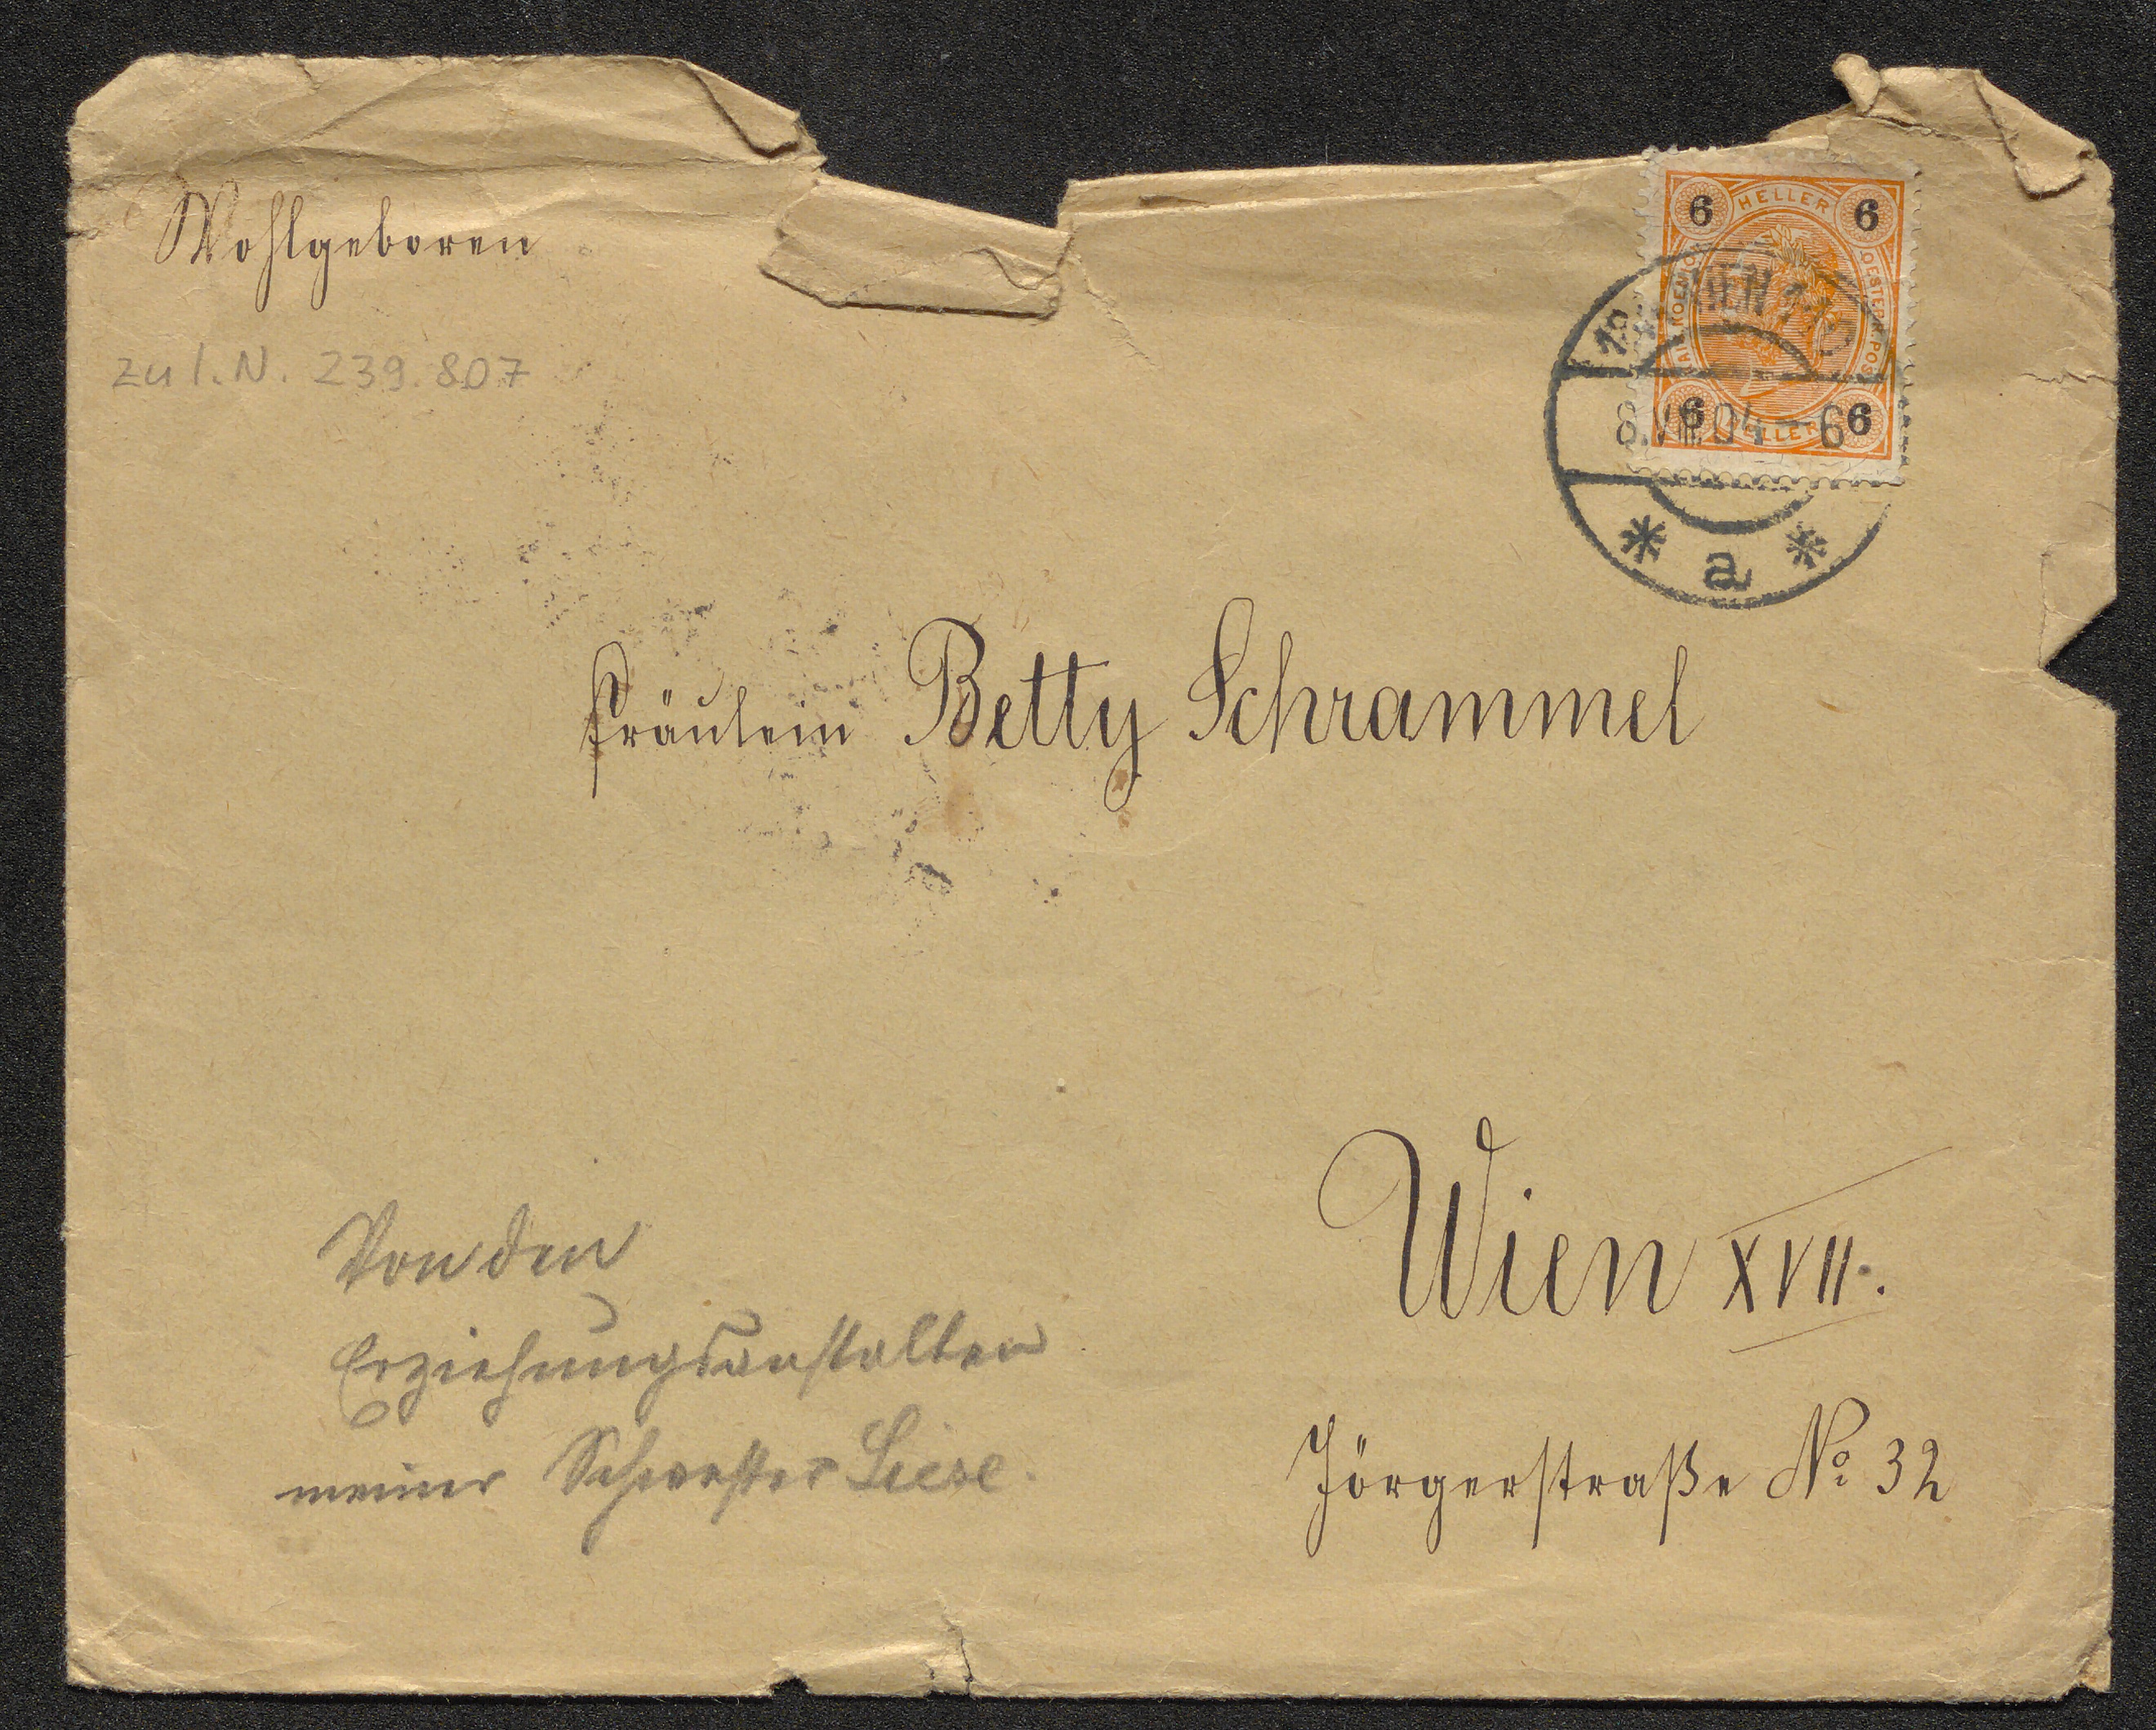 Wohlgeboren
zu I. N. 239.807
6 HELLER 6
6 HELLER 6
WIEN
8.VII.04-6
* a *
Fräulein Betty Schrammel
Wien XVII.
Jörgerstraße No 32
Von den
Erziehungsanstalten
meiner Schwester Liese.